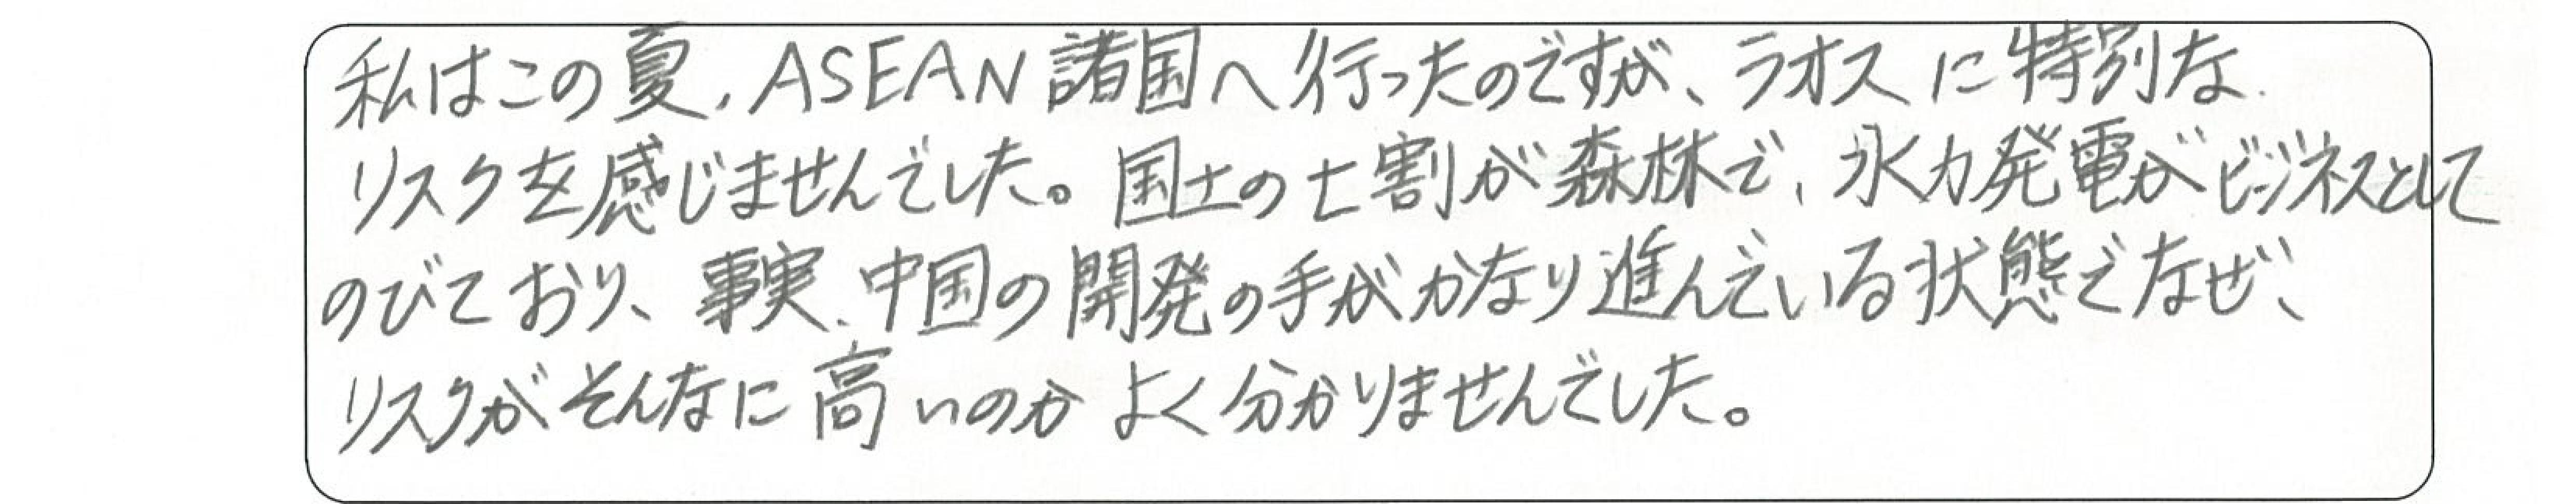 私はこの夏、ASEAN諸国へ行ったのですが、ラオスに特別な
リスクを感じませんでした。国土の七割が森林で、水力発電がビジネスとして
のびており、事実、中国の開発の手がかなり進んでいる状態でなぜ、
リスクがそんなに高いのかよく分かりませんでした。